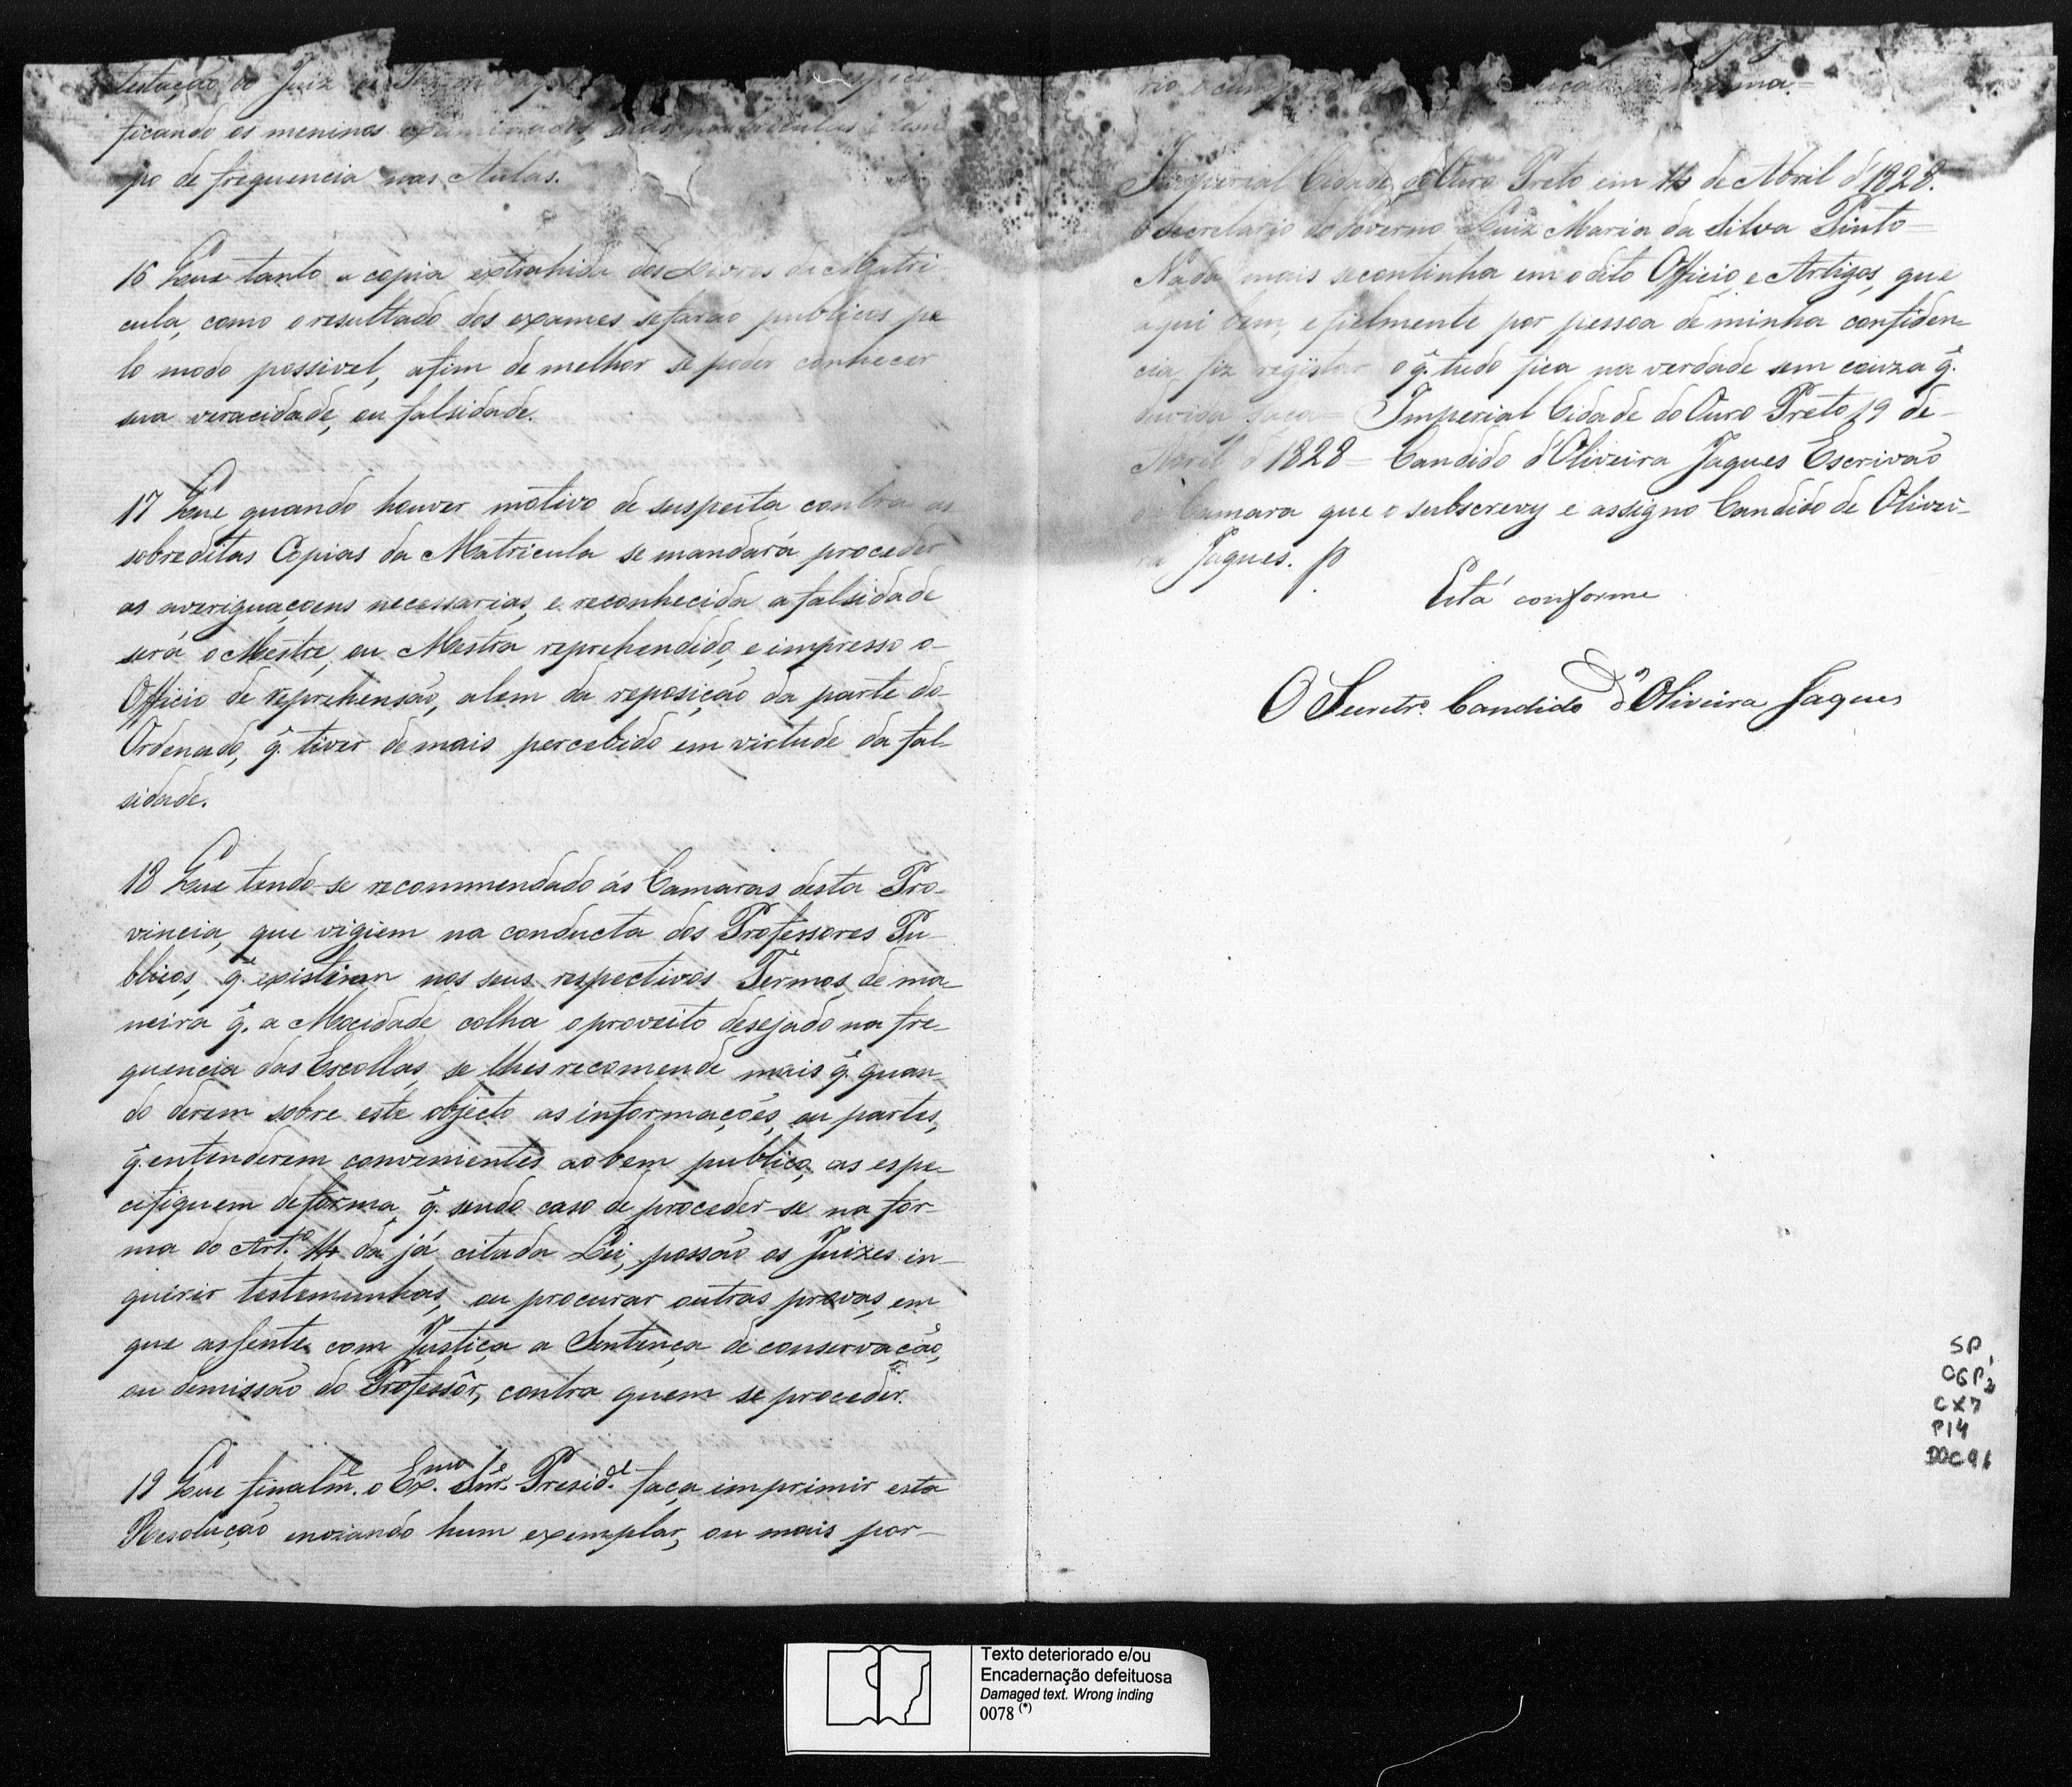 testação do Juiz
ficando os meninos examinados, suas matriculas e tem
po de frequencia nas Aulas.
16 Que tanto a copia extrahida dos Livros da Matri
cula, como o resultado dos exames se farão publicos pe
lo modo possivel, afim de melhor se poder conhecer
sua veracidade, ou falsidade.
17 Que quando houver motivo de suspeita contra as
sobreditas Copias da Matricula se mandará proceder
as averiguaçoens necessarias, e reconhecida a falsidade
será o Mestre, ou Mestra reprehendido, e impresso o
Officio de reprehensão, alem da reposição da parte do
Ordenado, q̃. tiver de mais percebido em virtude da fal-
sidade.
18 Que tendo-se recommendado ás Camaras desta Pro-
vincia, que vigiem na conducta dos Professores Pu-
blicos, q̃. existirem nos seus respectivos Termos, de ma-
neira q̃. a Mocidade colha o proveito desejado na fre-
quencia das Escollas, se lhes recomende mais q̃. quan-
do derem sobre este objecto as informações, ou partes,
q̃. entenderem convenientes ao bem publico, as espe-
cifiquem de forma, q̃. sendo caso de proceder-se na for-
ma do Art.º 14 da já citada Lei, possão os Juizes in-
quirir testemunhas, ou procurar outras provas, em
que assente com Justiça a Sentença de conservação,
ou demissão do Professôr, contra quem se proceder.
19 Que finalm.e o Ex.mo Snr. Presid.e faça imprimir esta
Resolução enviando hum exemplar, ou mais por-
Imperial Cidade do Ouro Preto em 14 de Abril d'1828.
O Secretario do Governo Luiz Maria da Silva Pinto =
Nada mais se continha em o dito Officio, e Artigos, que
aqui bem, e fielmente por pessoa de minha confiden-
cia fiz registar o q̃. tudo fica na verdade sem couza q̃.
duvida faça = Imperial Cidade do Ouro Preto 19 de
Abril d'1828 = Candido d'Oliveira Jaques Escrivão
da Camara que o subscrevy e assigno Candido de Olivei-
ra Jaques.
Está conforme
O Secretr.º Candido d'Oliveira Jaques
SP,
CGP,
CX7
P14
DOC91
Texto deteriorado e/ou
Encadernação defeituosa
Damaged text. Wrong inding
0078 (*)